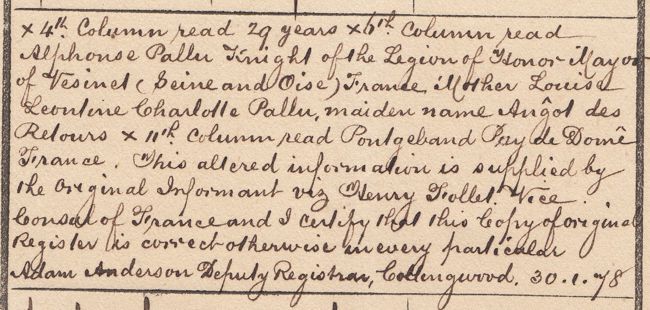 x 4th Column read 29 years x 6th Column read
Alphonse Pallu Knight of the Legion of Honor Mayor
of Vesinet (Seine and Oise) France Mother Louise
Leontine Charlotte Pallu, maiden name Angôt des
Retours x 11th Column read Pontgeband Puy de Domê
France. This altered information is supplied by
the Original Informant viz Henry Follet. Vice.
Consul of France and I certify that this Copy of original
Register is correct otherwise in every particular
Adam Anderson Deputy Registrar, Collingwood. 30.1.78